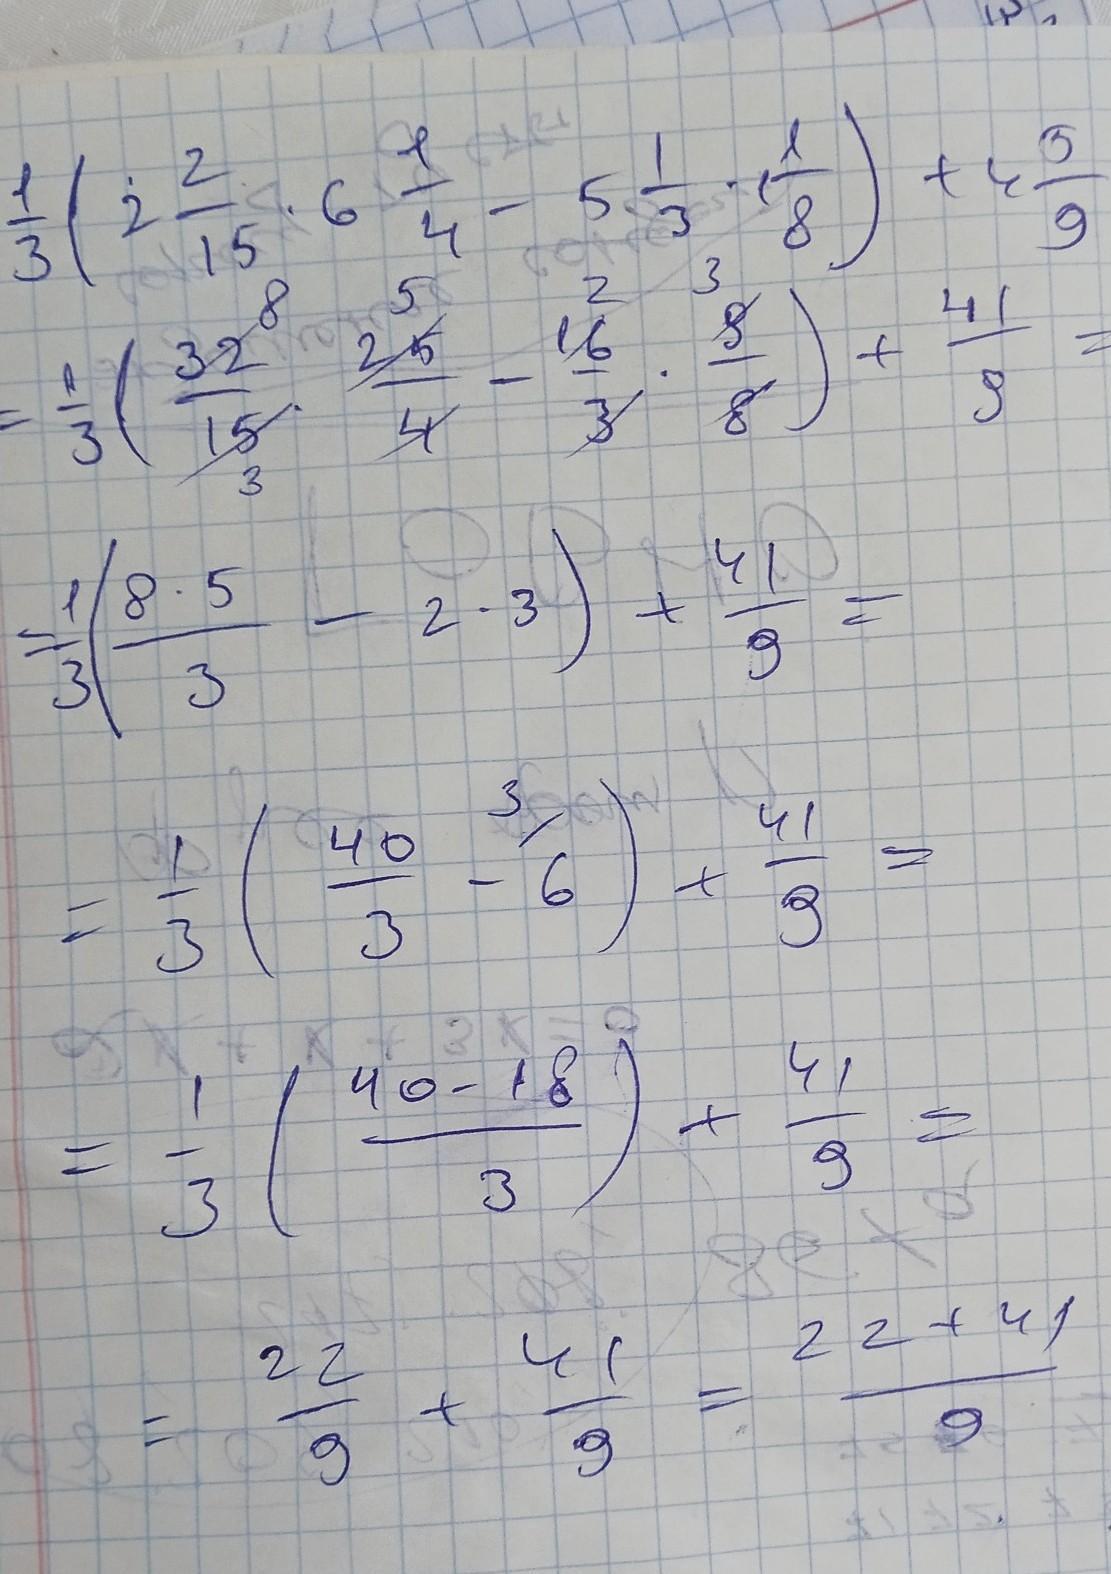 1/3 ( 2 2/15 · 6 1/4 - 5 1/3 · 1 1/8 ) + 4 5/9
= 1/3 ( 32 8/15 3 · 25 5/4 - 16 2/3 · 9 3/8 ) + 41/9 =
= 1/3 ( 8 · 5/3 - 2 · 3 ) + 41/9 =
= 1/3 ( 40/3 - 3/ 6 ) + 41/9 =
= 1/3 ( 40 - 18/3 ) + 41/9 =
= 22/9 + 41/9 = 22 + 41/9